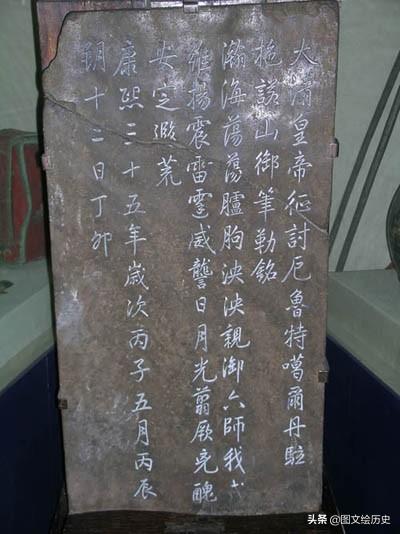 大清皇帝征討厄魯特噶爾丹駐
拖諾山御筆勒銘
瀚海蕩蕩臚朐泱泱親御六師我武
維揚震雷霆威讋日月光翦厥兇醜
安定遐荒
康熙三十五年歲次丙子五月丙辰
朔十二日丁卯
头条 @图文绘历史